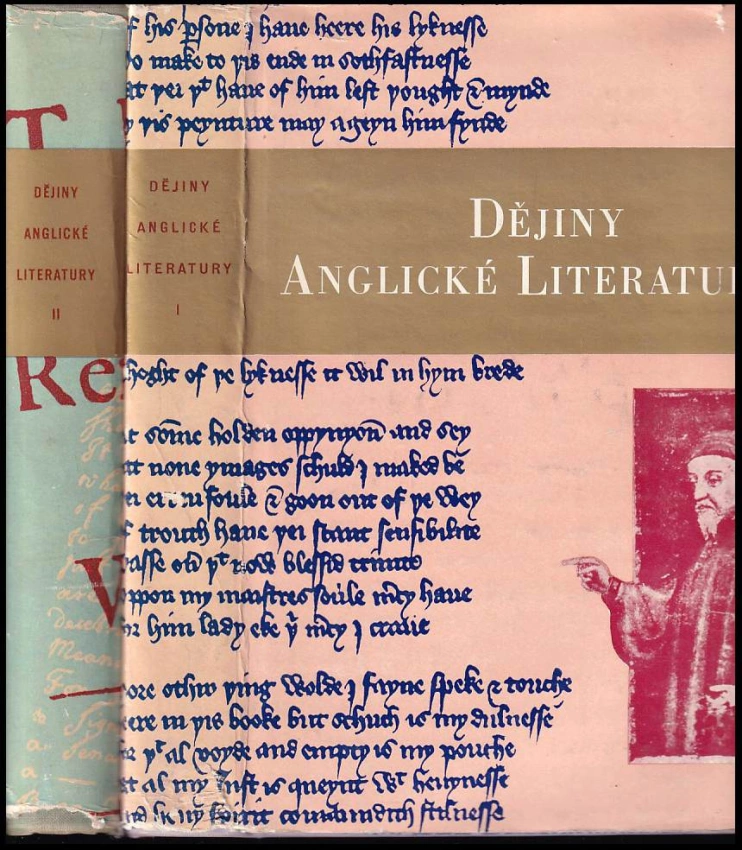 T
DĚJINY
ANGLICKÉ
LITERATURY
II
Re
DĚJINY
ANGLICKÉ
LITERATURY
I
f his ꝑsone I haue heere his lyknesse
o make to þis ende in sothfastnesse
at þei þᵗ haue of him left þought & mynde
y þis peynture may ageyn him fynde
DĚJINY
ANGLICKÉ LITERATU
hoght of þe lyknesse it wil in hym brede
t som̄e holden oppynyon̄ and sey
at none ymages schuld I maked be
foule & goon out of þe wey
f trouth haue þei scant sensibilite
asse oū þᵗ now blessid trinite
ppon my maistres soule m̄cy haue
or him lady eke þⁱ m̄cy I craue
ore othir þing wolde I fayne speke & touche
eere in þis booke but schuch is my dulnesse
þᵗ al voyde and empty is my pouche
at al my lust is queynt wᵗ heuynesse
spirit comaundith stilnesse